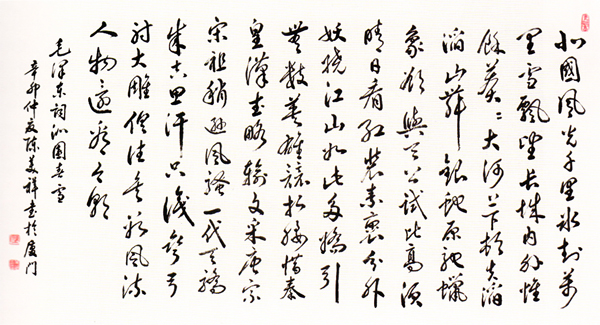 北國風光千里冰封萬
里雪飄望長城內外惟
餘莽〻大河上下頓失滔
滔山舞銀蛇原馳蠟
象欲與天公試比高須
晴日看紅裝素裹分外
妖嬈江山如此多嬌引
無數英雄競折腰惜秦
皇漢武略輸文采唐宗
宋祖稍遜風騷一代天驕
成吉思汗只識彎弓
射大雕俱往矣數風流
人物還看今朝
毛澤東詞沁園春雪
辛卯仲夏陳美祥書於廈門